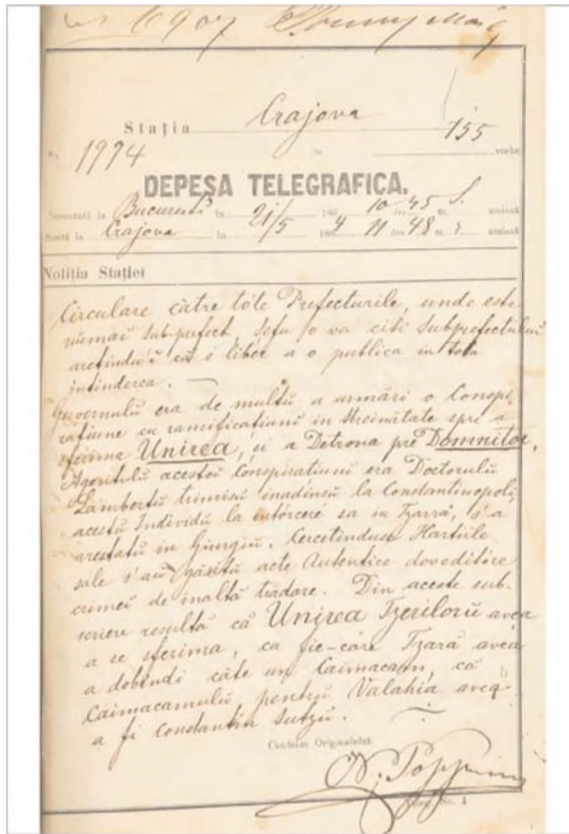 1907
Stația Crajova
155
No. 1974
vorbe
DEPEȘA TELEGRAFICA.
la Bucuresti la 21/5 186 10 ore 45 m. s. amiază
la Crajova la 21/5 1864 11 ore 48 m. s amiază
Notiția Stației
Circulare către tóte Prefecturile, unde este
numai subprefect, șefu o va citi Subprefectului
aretîndu'i că i liber a o publica in tota
intinderea. —
Guvernulu era de multŭ a urmări o Conspi-
rațiune cu ramificațiuni in streinătate spre a
sferima Unirea, și a Detrona pre Domnitor,
Agentulu acestei Conspirațiuni era Doctorulŭ
Lambertŭ trimisŭ inadinsŭ la Constantinopoli,
acestŭ Individŭ la intórcere sa in Tzarră, s'a
arestatŭ in Giurgiŭ. Cercetîndusĕ Hârtiile
sale s'aŭ găsitŭ acte Autentice doveditóre
crimei de inaltă trădare. Din aceste sub-
scriere resultă că Unirea Tzerilorŭ avea
a se sferima, ca fie-care Tzară avea
a dobîndi câte un Caimacam, că
Caimacamulŭ pentru Valahia avea
a fi Constantin Sutzŭ. —
Conform Originalului